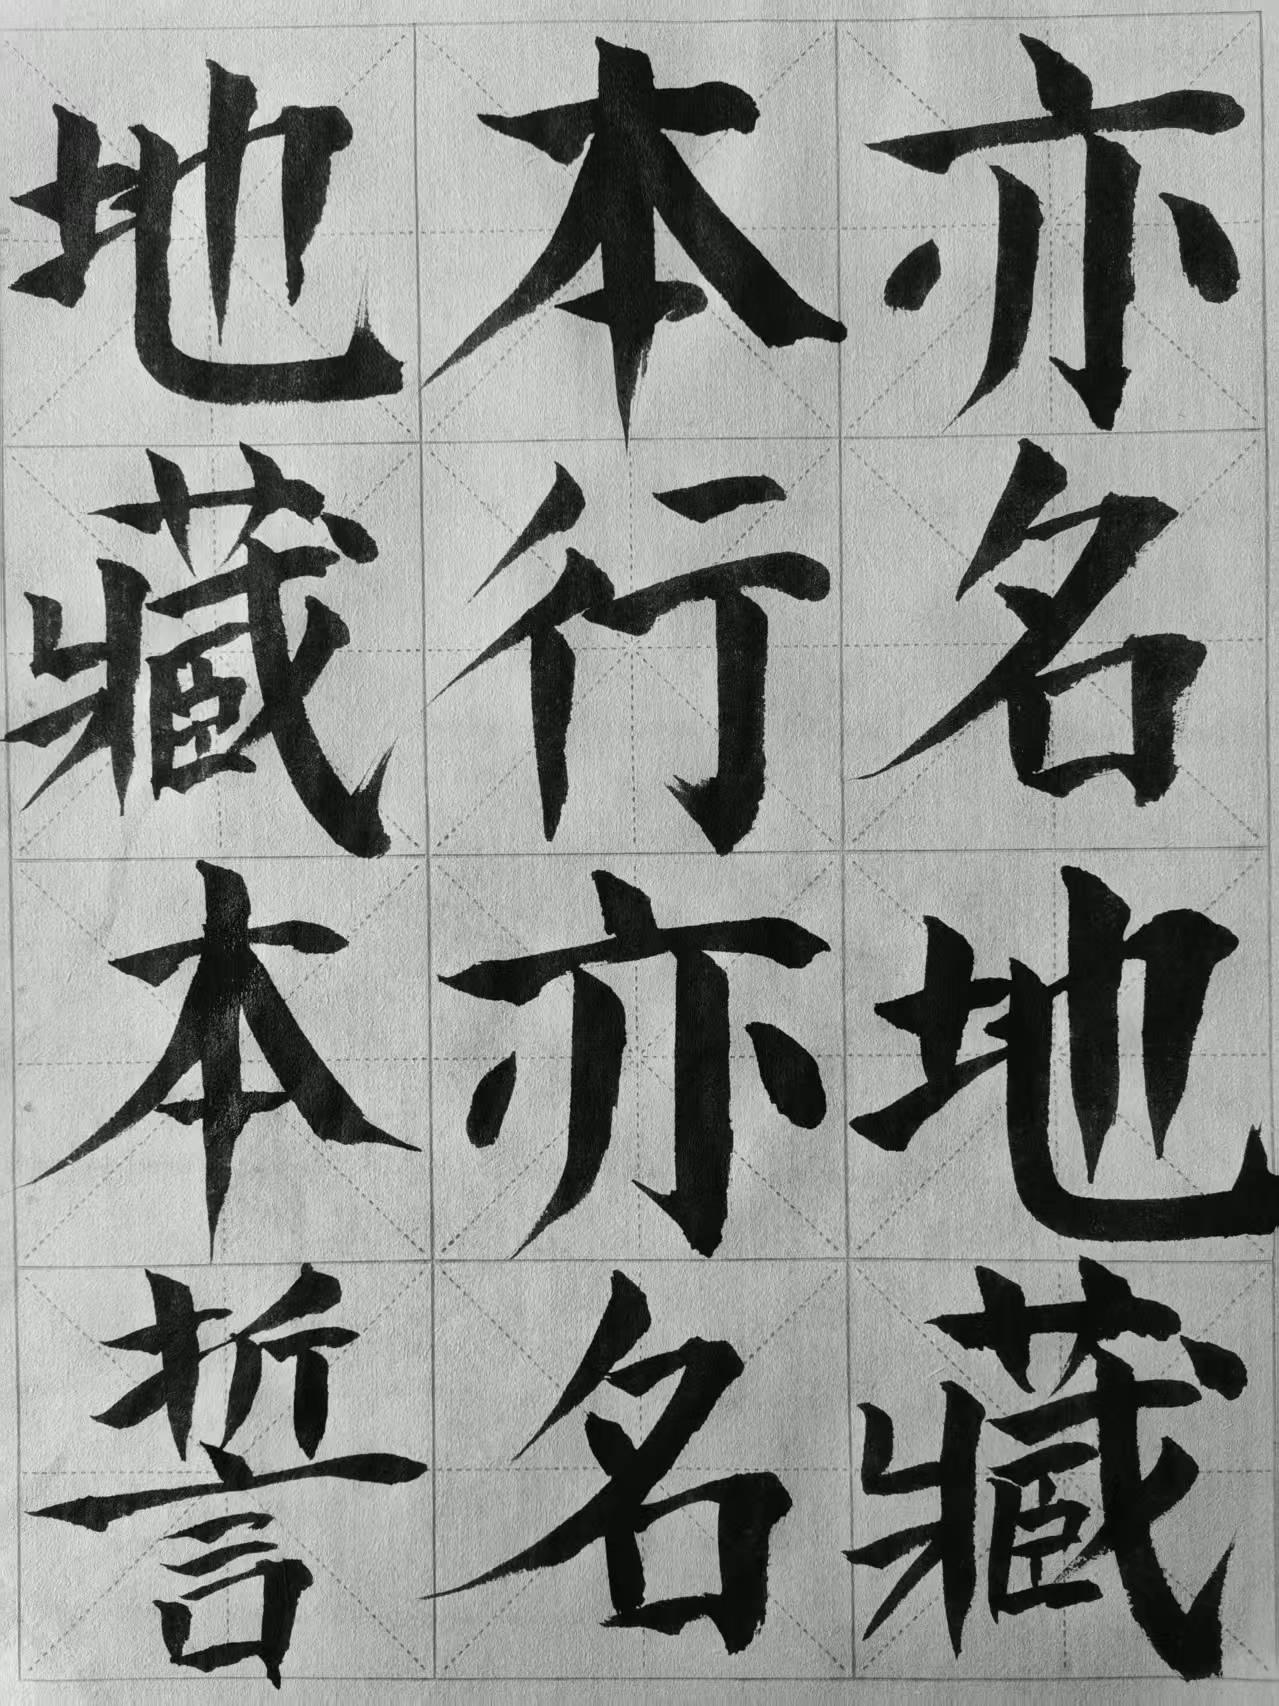 亦名地藏
本行亦名
地藏本誓